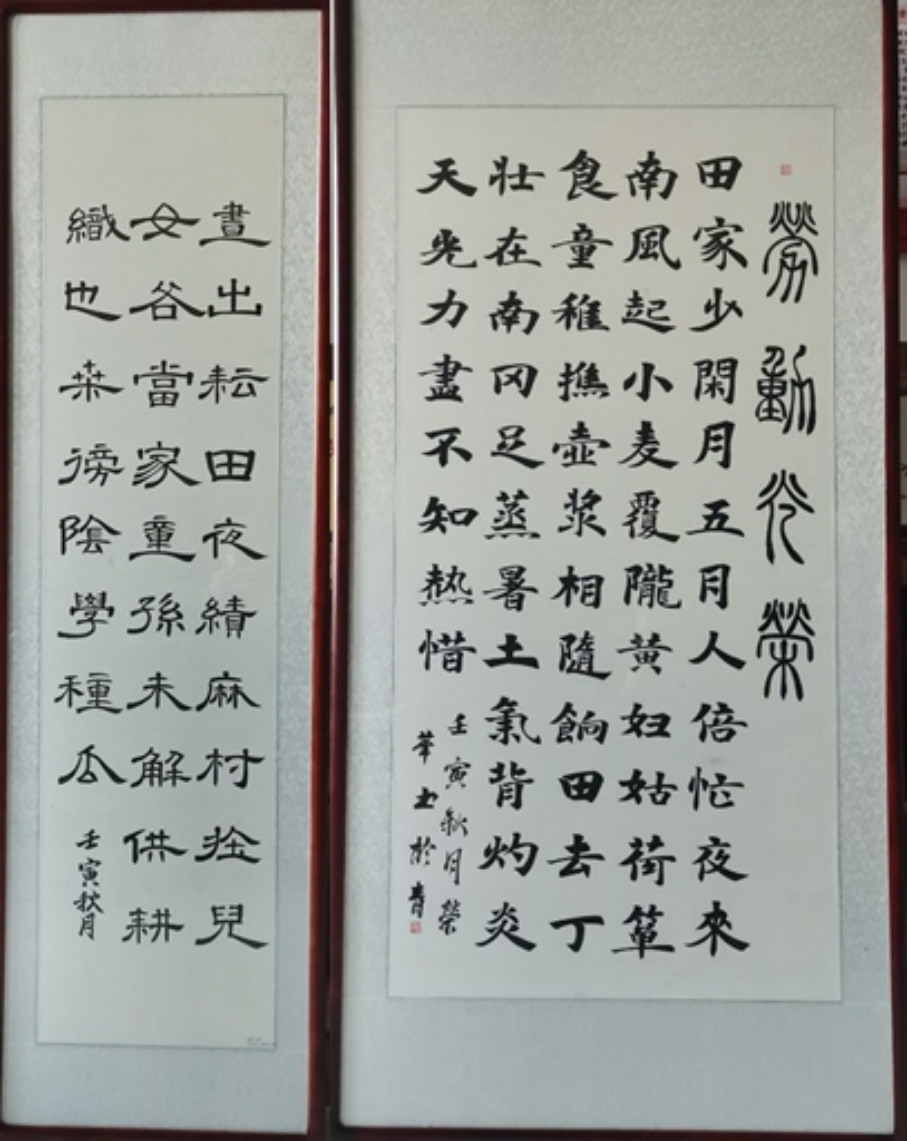 勞動光榮
田家少閑月五月人倍忙夜來
南風起小麦覆隴黄妇姑荷簞
食童稚携壺浆相隨餉田去丁
壮在南冈足蒸暑土氣背灼炎
天光力盡不知熱惜
壬寅秋月榮
華书於青
晝出耘田夜績麻村莊兒
女谷當家童孫未解供耕
織也桒徬陰學種瓜
壬寅秋月